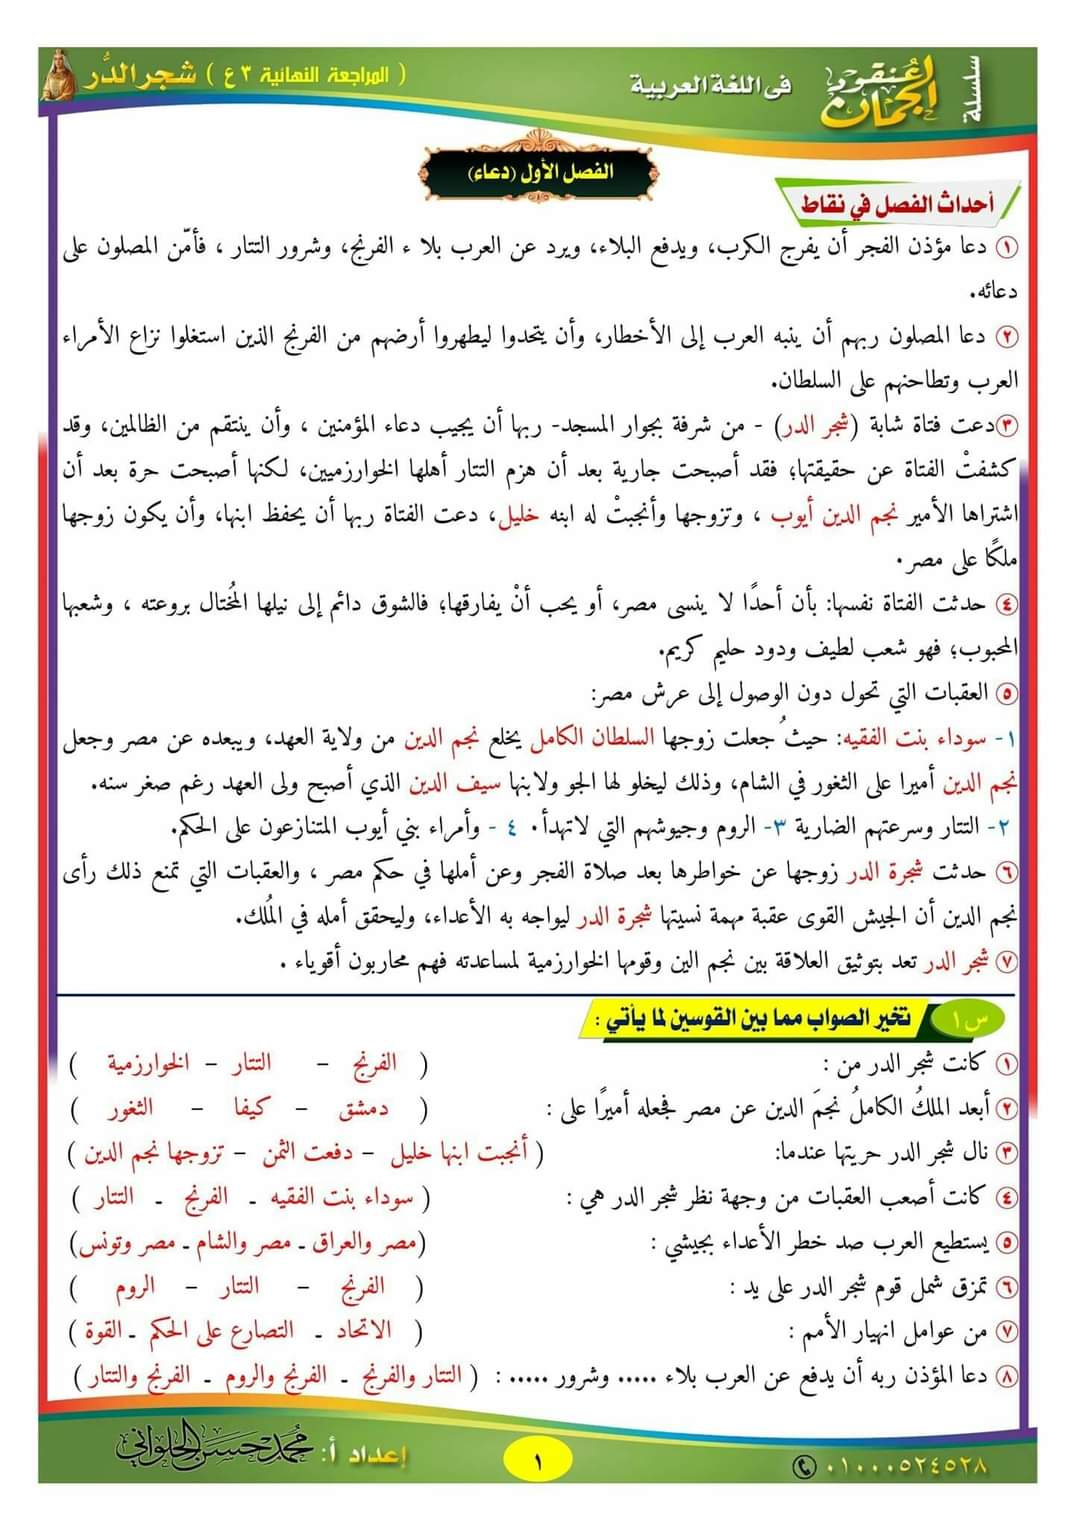 سلسلة عُنقود الجُمان فى اللغة العربية ( المراجعة النهائية ٣ع ) شجر الدُّر
الفصل الأول (دعاء)
أحداث الفصل في نقاط
١ دعا مؤذن الفجر أن يفرج الكرب، ويدفع البلاء، ويرد عن العرب بلا ء الفرنج، وشرور التتار ، فأمّن المصلون على
دعائه.
٢ دعا المصلون ربهم أن ينبه العرب إلى الأخطار، وأن يتحدوا ليطهروا أرضهم من الفرنج الذين استغلوا نزاع الأمراء
العرب وتطاحنهم على السلطان.
٣دعت فتاة شابة (شجر الدر) - من شرفة بجوار المسجد- ربها أن يجيب دعاء المؤمنين ، وأن ينتقم من الظالمين، وقد
كشفتْ الفتاة عن حقيقتها؛ فقد أصبحت جارية بعد أن هزم التتار أهلها الخوارزميين، لكنها أصبحت حرة بعد أن
اشتراها الأمير نجم الدين أيوب ، وتزوجها وأنجبتْ له ابنه خليل، دعت الفتاة ربها أن يحفظ ابنها، وأن يكون زوجها
ملكًا على مصر.
٤ حدثت الفتاة نفسها: بأن أحدًا لا ينسى مصر، أو يحب أنْ يفارقها؛ فالشوق دائم إلى نيلها المُختال بروعته ، وشعبها
المحبوب؛ فهو شعب لطيف ودود حليم كريم.
٥ العقبات التي تحول دون الوصول إلى عرش مصر:
١- سوداء بنت الفقيه: حيثُ جعلت زوجها السلطان الكامل يخلع نجم الدين من ولاية العهد، ويبعده عن مصر وجعل
نجم الدين أميرا على الثغور في الشام، وذلك ليخلو لها الجو ولابنها سيف الدين الذي أصبح ولى العهد رغم صغر سنه.
٢- التتار وسرعتهم الضارية ٣- الروم وجيوشهم التي لاتهدأ. ٤ - وأمراء بني أيوب المتنازعون على الحكم.
٦ حدثت شجرة الدر زوجها عن خواطرها بعد صلاة الفجر وعن أملها في حكم مصر ، والعقبات التي تمنع ذلك رأى
نجم الدين أن الجيش القوى عقبة مهمة نسيتها شجرة الدر ليواجه به الأعداء، وليحقق أمله في المُلك.
٧ شجر الدر تعد بتوثيق العلاقة بين نجم الين وقومها الخوارزمية لمساعدته فهم محاربون أقوياء .
س١ تخير الصواب مما بين القوسين لما يأتي :
١ كانت شجر الدر من : ( الفرنج – التتار – الخوارزمية )
٢ أبعد الملكُ الكاملُ نجمَ الدين عن مصر فجعله أميرًا على : ( دمشق – كيفا – الثغور )
٣ نال شجر الدر حريتها عندما: ( أنجبت ابنها خليل – دفعت الثمن – تزوجها نجم الدين )
٤ كانت أصعب العقبات من وجهة نظر شجر الدر هي : ( سوداء بنت الفقيه ـ الفرنج ـ التتار )
٥ يستطيع العرب صد خطر الأعداء بجيشي : (مصر والعراق ـ مصر والشام ـ مصر وتونس)
٦ تمزق شمل قوم شجر الدر على يد : ( الفرنج – التتار – الروم )
٧ من عوامل انهيار الأمم : ( الاتحاد ـ التصارع على الحكم ـ القوة )
٨ دعا المؤذن ربه أن يدفع عن العرب بلاء ..... وشرور ..... : ( التتار والفرنج ـ الفرنج والروم ـ الفرنج والتتار )
٠١٠٠٠٥٢٤٥٢٨ ١ إعداد أ: محمد حسن الحلواني